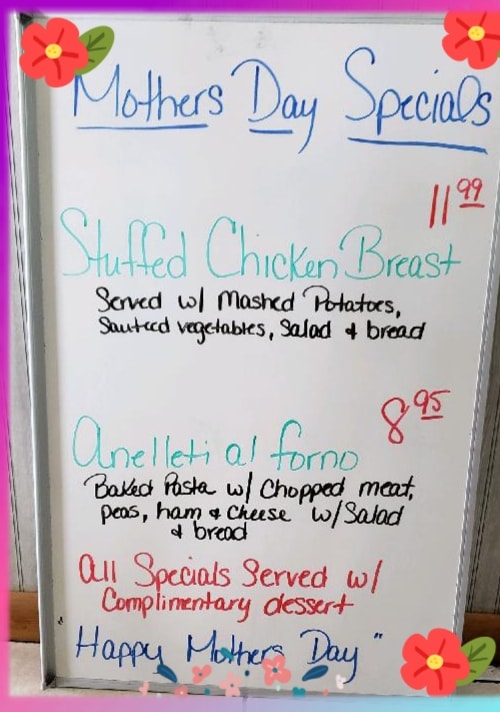 Mothers Day Specials
11.99
Stuffed Chicken Breast
Served w/ Mashed Potatoes,
Sauteed vegetables, Salad & bread
8.95
Anelleti al forno
Baked Pasta w/ Chopped meat,
peas, ham & Cheese w/ Salad
& bread
All Specials Served w/
Complimentary dessert
"Happy Mothers Day"